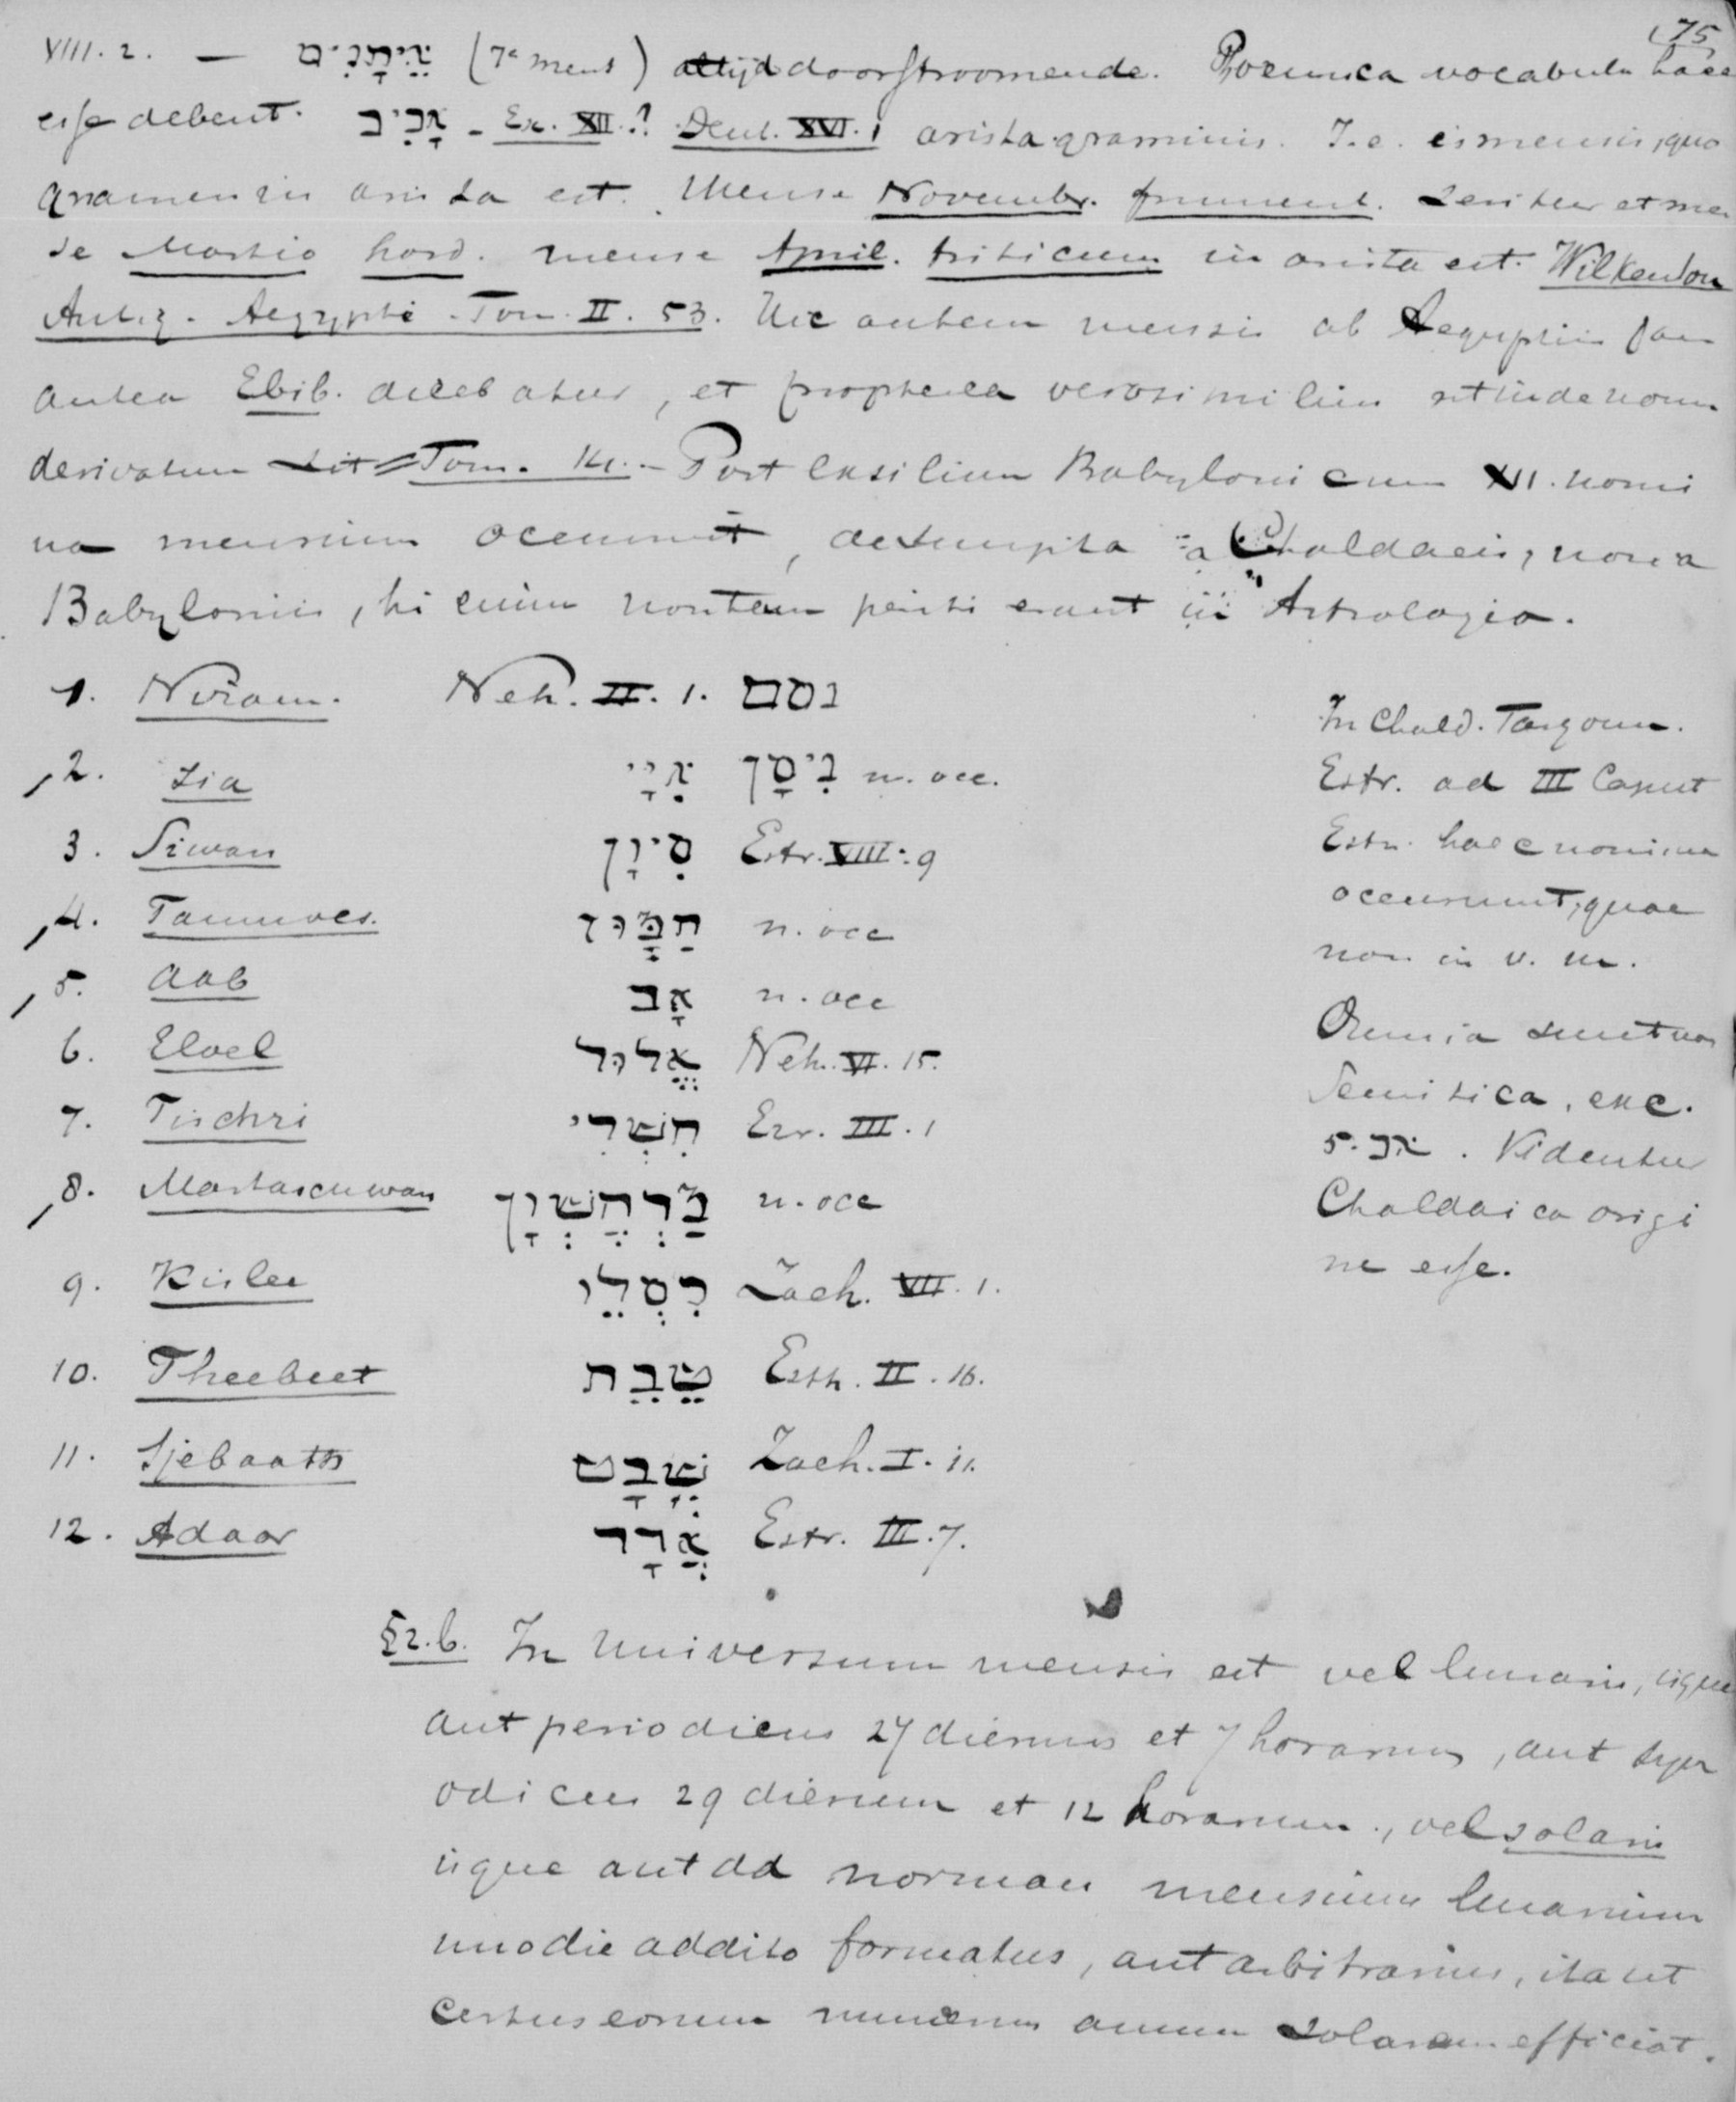 75
VIII. 2. — אֵיתָנִים (7e ment) altijd doorstroomende. vocabula haec
esse debent. אָבִיב - Ex. XII.? Deut. XVI. 1 arista graminis. I.e. is mensis, quo
gramen in arista est. Mense Novembr. frument. seritur et men
se Martio hord. mense April. triticum in arista est. Wilkenson
Antiq. Aegypti. Tom. II. 53. Hic autem mensis ab Aegyptiis jam
antea Ebib. dicebatur, et propterea verosimilius ut inde nomen
derivatum sit = Tom. Post exsilium Babylonicum XII. nomi
na mensium occurrunt, desumpta a Chaldaeis, non a
Babyloniis, hi enim non tam periti erant in Astrologia.
1. Nisam. Neh. II. 1. נסם
2. Zia אִיָּי נִיסָן n. occ.
3. Siwan סִיוָן Estr. VIII: 9
4. Tammoes. תַּמּוּז n. occ
5. Aab אָב n. occ
6. Eloel אֱלוּל Neh. VI. 15.
7. Tischri תִּשְׁרִי Ezr. III. 1
8. Martaschwan מַרְחֶשְׁוָן n. occ
9. Kislee כִּסְלֵו Zach. VII. 1.
10. Theebeet טֵבֵת Esth. II. 16.
11. Sjebaath שְׁבָט Zach. I. 11.
12. Adaar אֲדָר Estr. III. 7.
In Chald. Targoum.
Estr. ad III Caput
Estr. haec nomina
occurrunt, quae
non in v. m.
Omnia sunt non
Semitica, exc.
5. אב. Videntur
Chaldaica origi
ne esse.
§2.b. In universum mensis est vel lunaris, isque
aut periodicus 27 dierum et 7 horarum, aut syn
odicus 29 dierum et 12 horarum, vel solaris
isque aut ad norman mensium lunarium
uno die addito formatus, aut arbitrarius, ita ut
certus eorum numerus annum solarem efficiat.